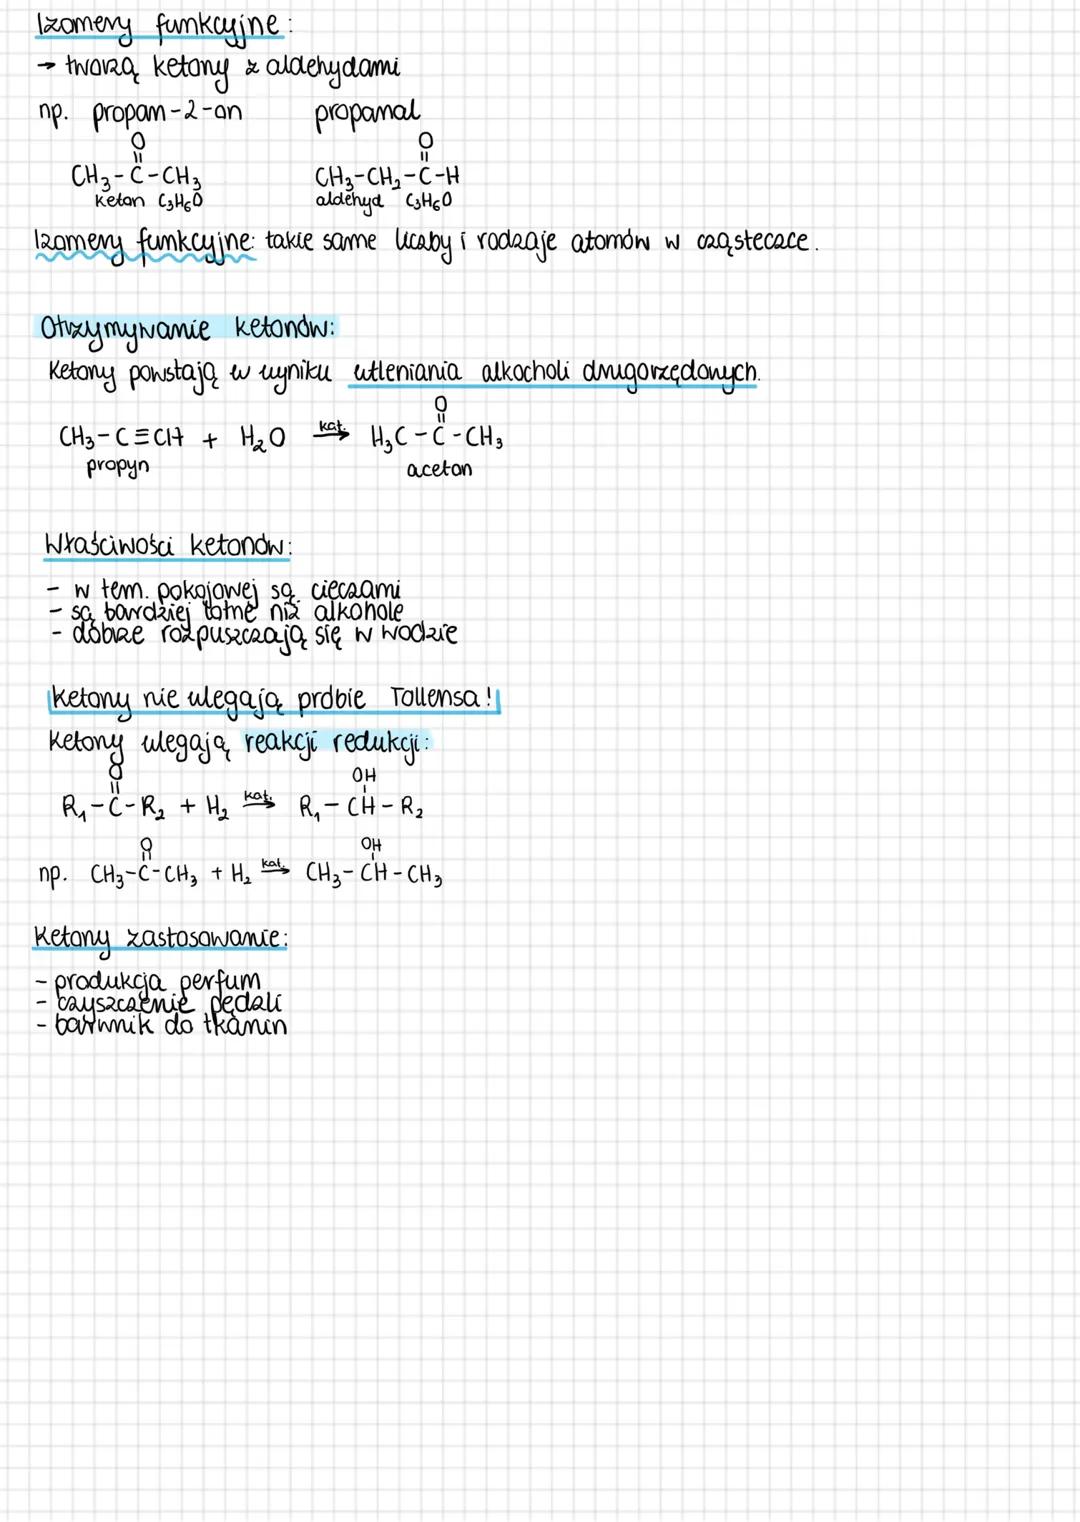 Izomery funkcyjne:
→ tworzą ketony z aldehydami
np. propan-2-on propanal
O O
|| ||
CH₃-C-CH₃ CH₃-CH₂-C-H
keton C₃H₆O aldehyd C₃H₆O
Izomery funkcyjne: takie same liczby i rodzaje atomów w cząsteczce.
Otrzymywanie ketonów:
Ketony powstają w wyniku utleniania alkocholi drugorzędonych.
O
||
CH₃-C≡CH + H₂O kat.→ H₃C-C-CH₃
propyn aceton
Właściwości ketonów:
- w tem. pokojowej są cieczami
- są bardziej lotne niż alkohole
- dobrze rozpuszczają się w wodzie
Ketony nie ulegają próbie Tollensa!
Ketony ulegają reakcji redukcji:
O OH
|| |
R₁-C-R₂ + H₂ kat.→ R₁-CH-R₂
O OH
|| |
np. CH₃-C-CH₃ + H₂ kat.→ CH₃-CH-CH₃
Ketony zastosowanie:
- produkcja perfum
- czyszczenie pędzli
- barwnik do tkanin